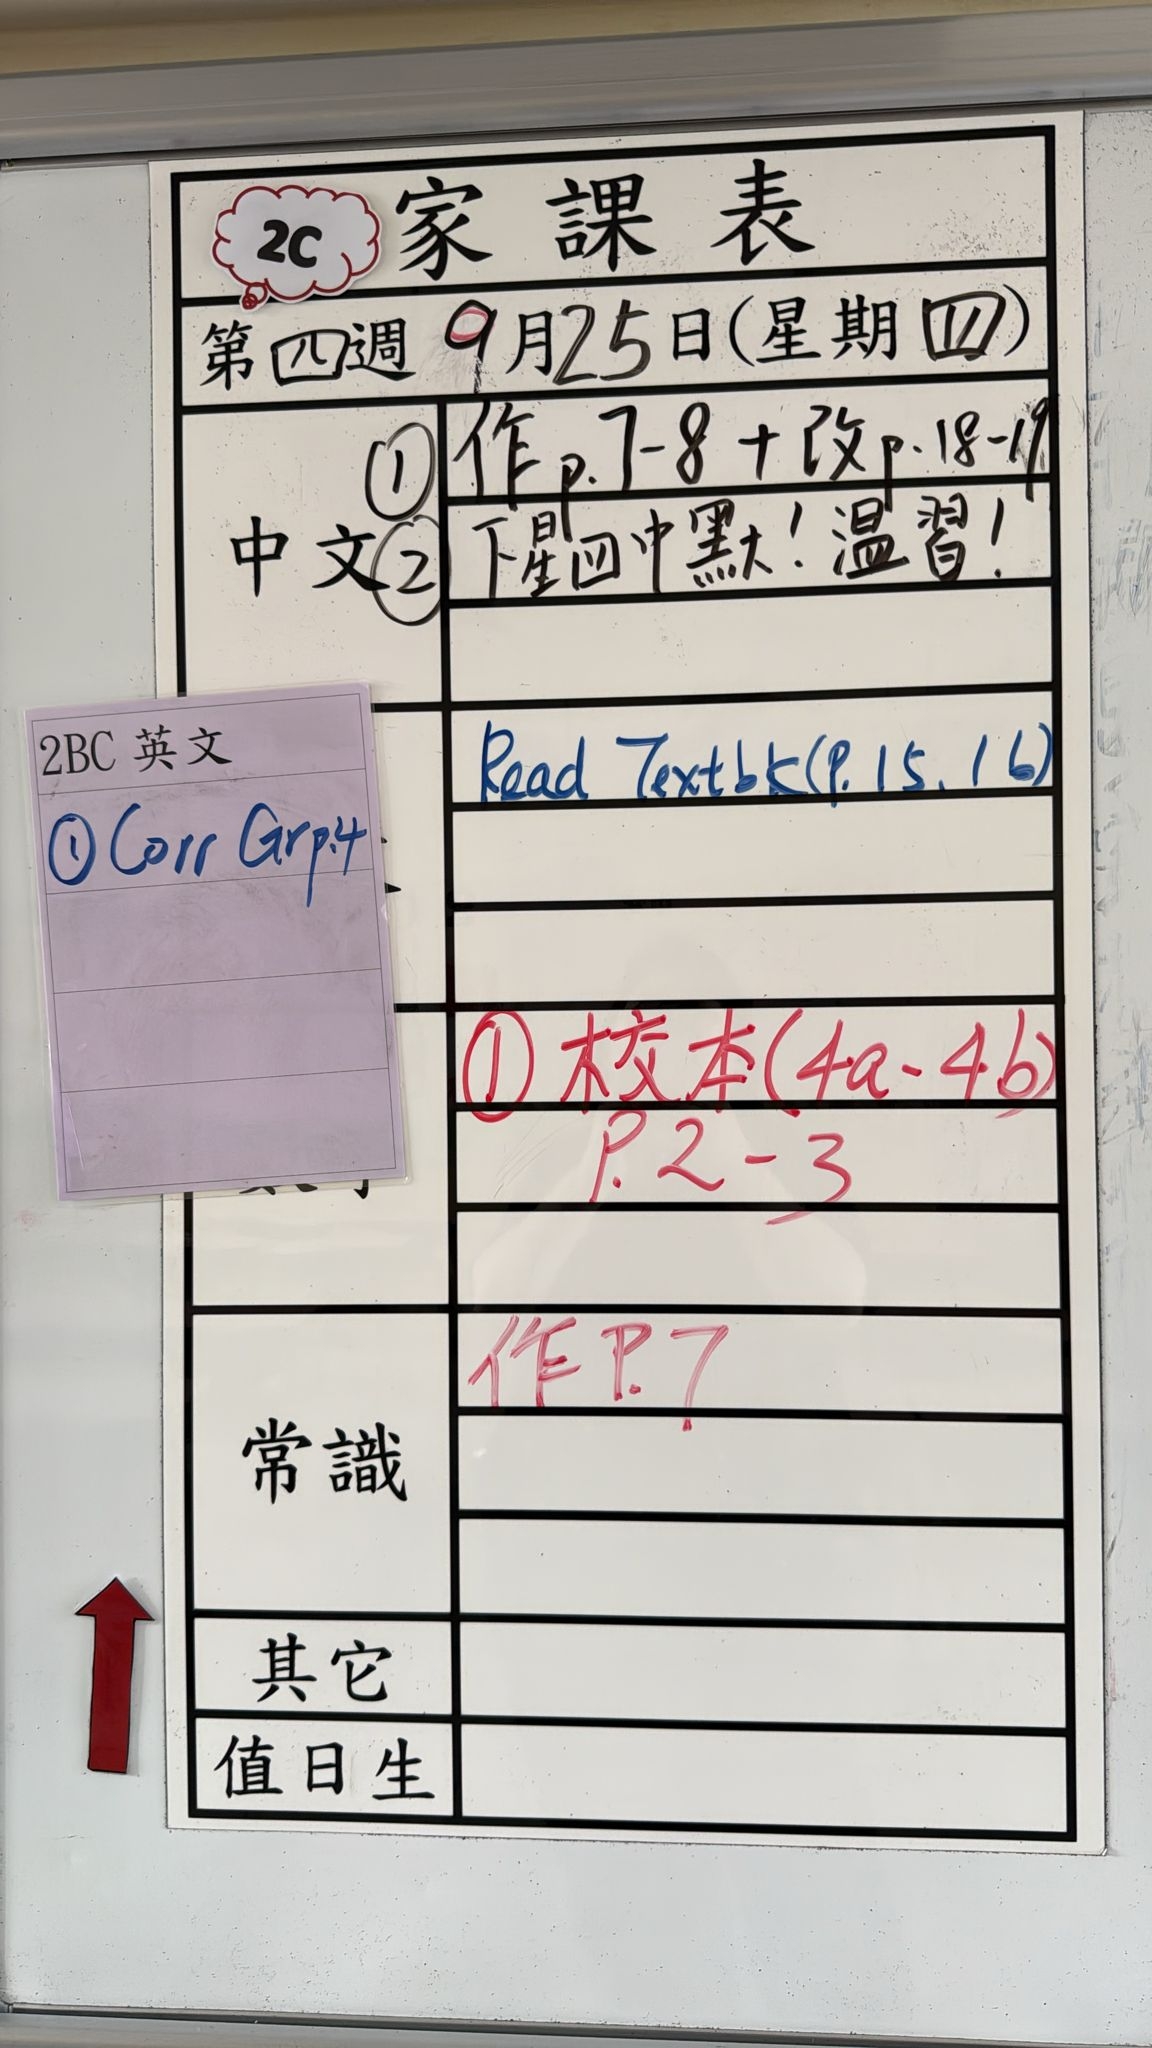 2C 家課表
第四週 9月25日(星期四)
中文 ① 作p.7-8 + 改p.18-19
② 下星四中默！温習！
2BC 英文
① Corr Gr p.4
Read Textbk (P.15, 16)
① 校本(4a-4b)
P.2-3
常識 作 P.7
其它
值日生